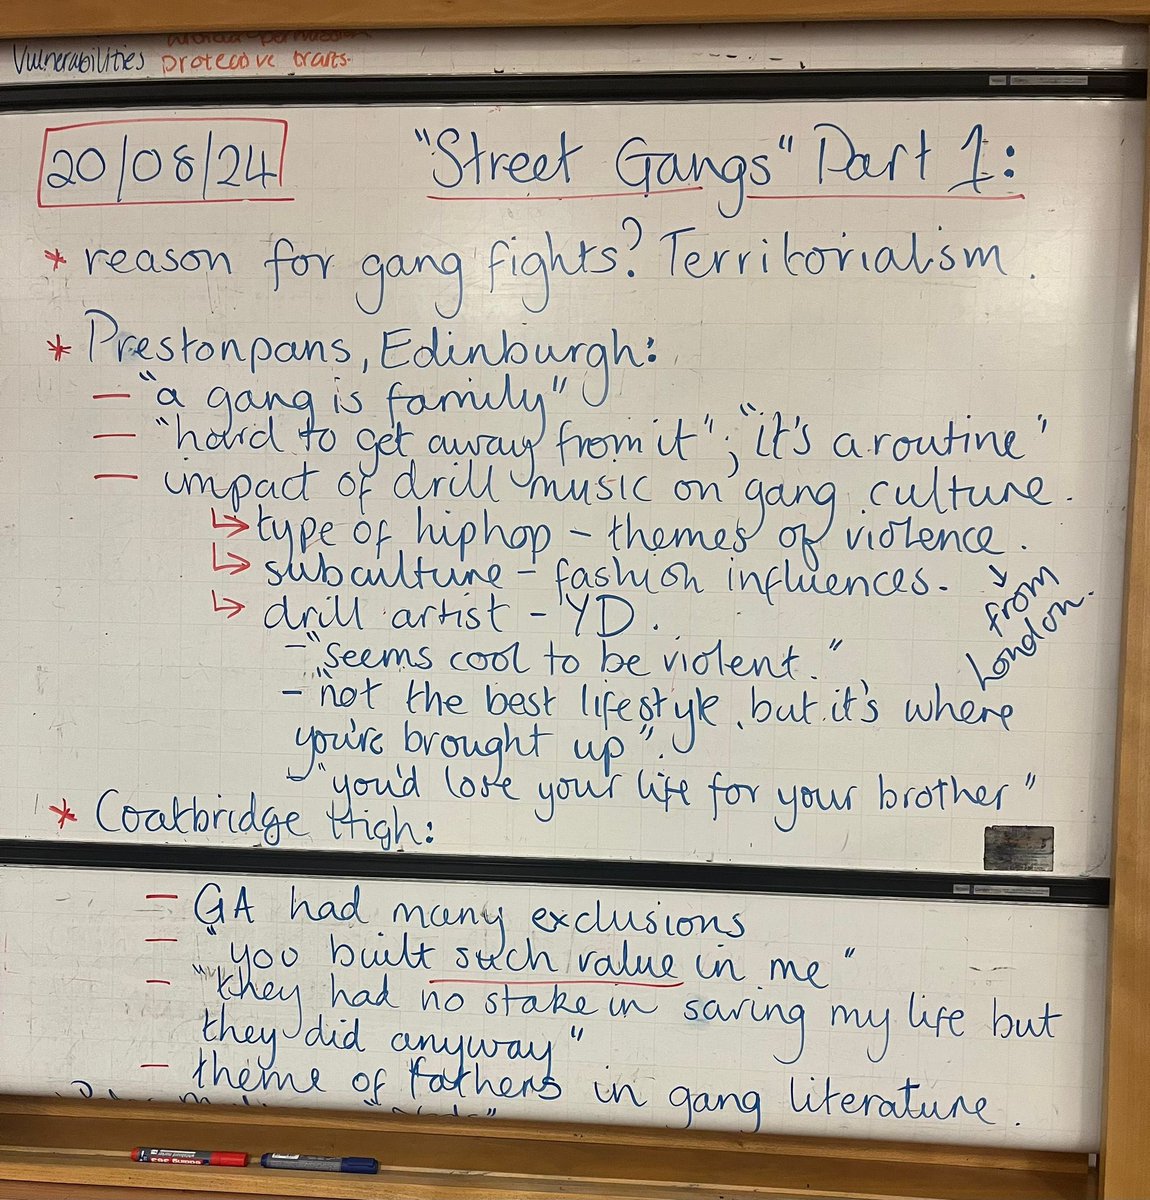 Vulnerabilities protective traits.
20/08/24
"Street Gangs" Part 1:
* reason for gang fights? Territorialism.
* Prestonpans, Edinburgh:
— "a gang is family"
— "hard to get away from it"; "it's a routine"
— impact of drill music on gang culture.
↳ type of hiphop - themes of violence.
↳ subculture - fashion influences.
↳ drill artist - YD.
↘ from London.
- "seems cool to be violent."
- "not the best lifestyle but it's where
you're brought up".
- "you'd lose your life for your brother"
* Coatbridge High:
— GA had many exclusions
— "you built such value in me"
— "they had no stake in saving my life but
they did anyway"
— theme of fathers in gang literature.